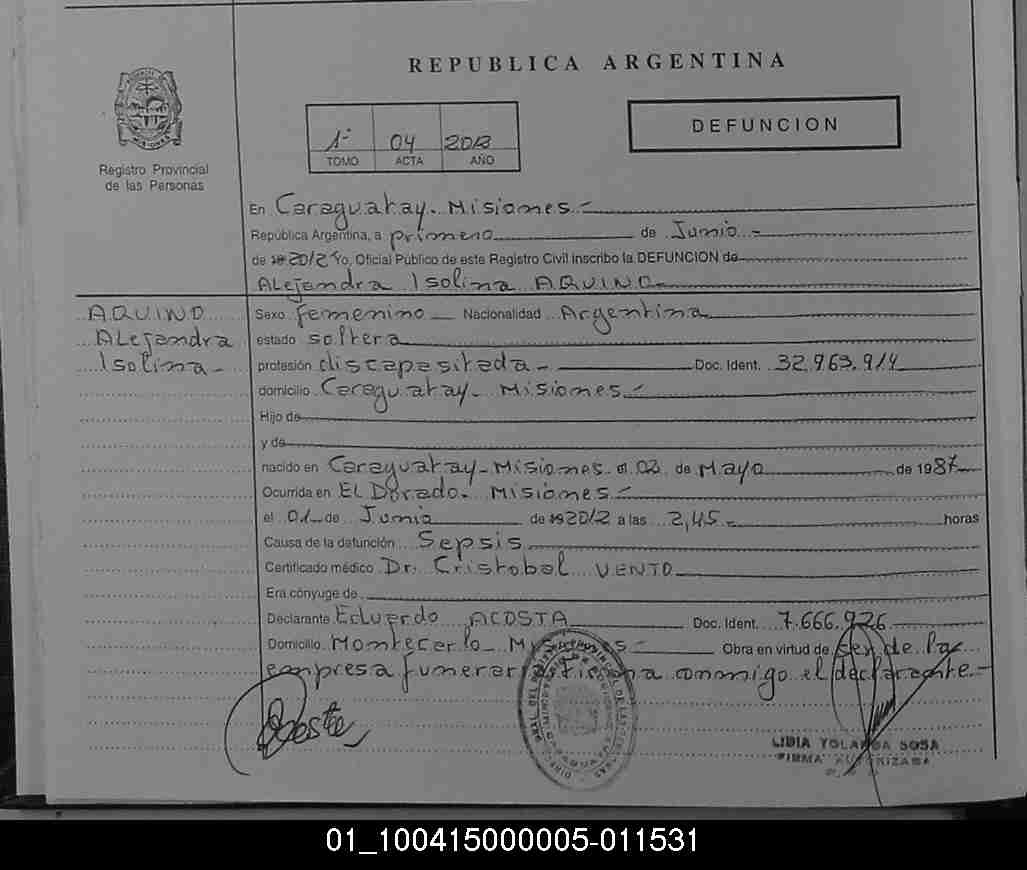 REPUBLICA ARGENTINA
Registro Provincial
de las Personas
1º 04 2012
TOMO ACTA AÑO
DEFUNCION
En Caraguatay. Misiones.-
República Argentina, a primero de Junio.-
de 19 2012 Yo, Oficial Público de este Registro Civil inscribo la DEFUNCION de
ALejandra Isolina AQUINO
AQUINO
ALejandra
Isolina.-
Sexo femenino Nacionalidad Argentina
estado soltera
profesión discapasitada.- Doc. Ident. 32.963.914
domicilio Caraguatay. Misiones.-
Hijo de
y de
nacido en Caraguatay. Misiones el 02 de Mayo de 1987
Ocurrida en EL Dorado. Misiones.-
el 01 de Junio de 19 2012 a las 2,45.- horas
Causa de la defunción Sepsis
Certificado médico Dr. Cristobal VENTO
Era cónyuge de
Declarante Eduardo ACOSTA Doc. Ident. 7.666.926
Domicilio Montecarlo Obra en virtud de ser de la
empresa conmigo el declarante.-
LIDIA YOLANDA SOSA
FIRMA AUTORIZADA
01_100415000005-011531